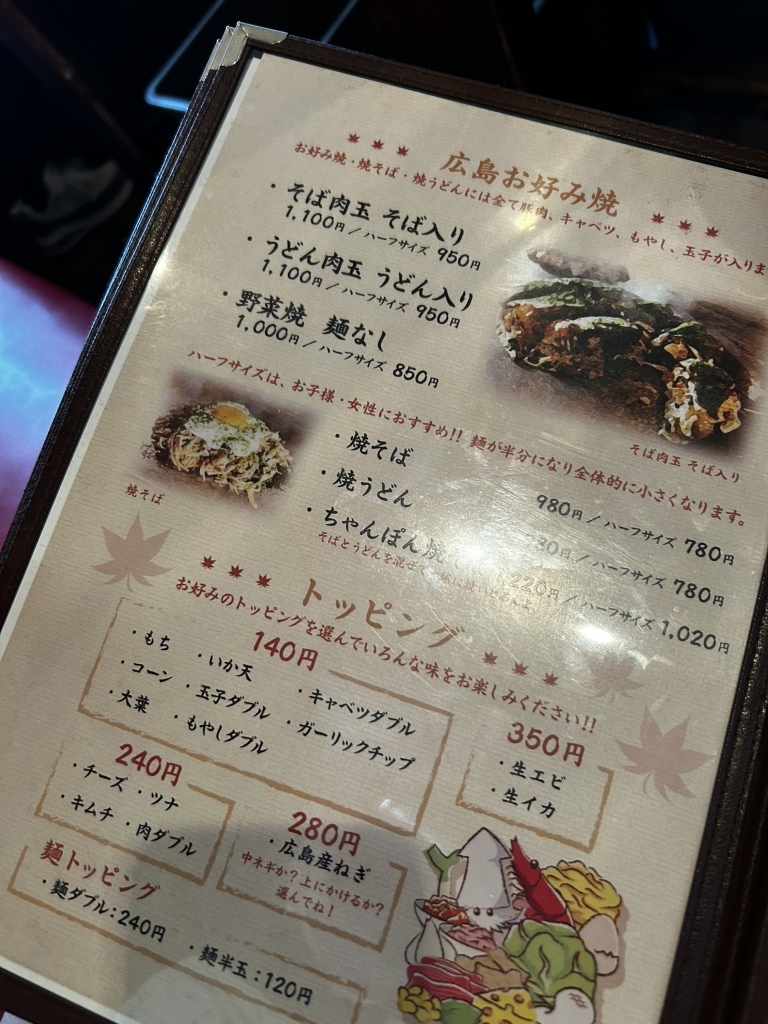 広島お好み焼
お好み焼・焼そば・焼うどんには全て豚肉、キャベツ、もやし、玉子が入りま
・そば肉玉 そば入り
1,100円／ハーフサイズ 950円
・うどん肉玉 うどん入り
1,100円／ハーフサイズ 950円
・野菜焼 麺なし
1,000円／ハーフサイズ 850円
そば肉玉 そば入り
ハーフサイズは、お子様・女性におすすめ!! 麺が半分になり全体的に小さくなります。
焼そば
・焼そば 980円／ハーフサイズ 780円
・焼うどん 80円／ハーフサイズ 780円
・ちゃんぽん焼 220円／ハーフサイズ 1,020円
そばとうどんを混ぜて
トッピング
お好みのトッピングを選んでいろんな味をお楽しみください!!
140円
・もち ・いか天 ・キャベツダブル
・コーン ・玉子ダブル ・ガーリックチップ
・大葉 ・もやしダブル
350円
・生エビ
・生イカ
240円
・チーズ ・ツナ
・キムチ ・肉ダブル
280円
・広島産ねぎ
中ネギか？上にかけるか？
選んでね！
麺トッピング
・麺ダブル：240円 ・麺半玉：120円